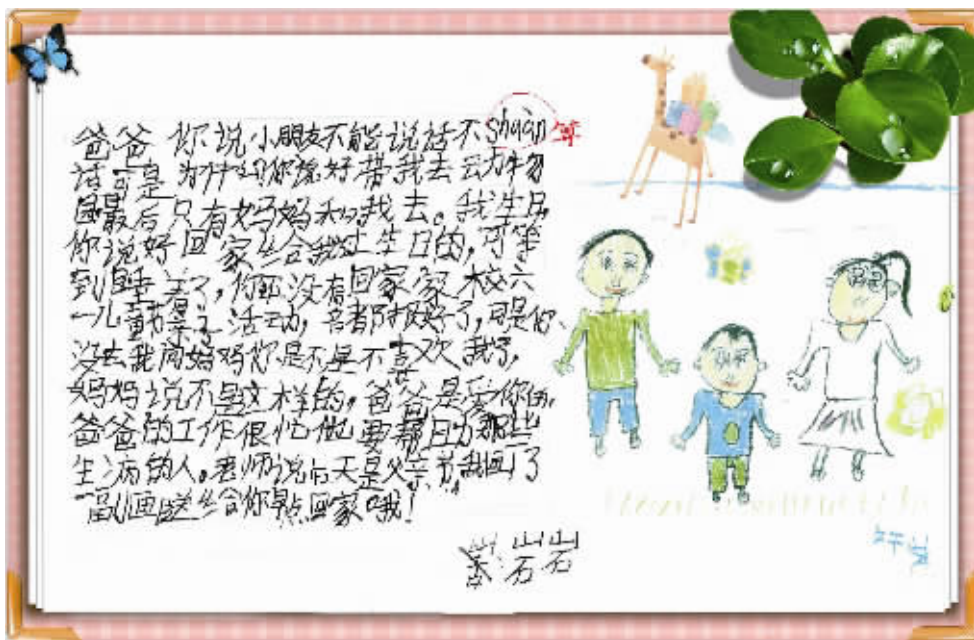 爸爸 你说小朋友不能说话不shuàn
话可是为什吗你说好带我去云力牛勿
园最后只有妈妈和我去。我生日,
你说好回家给我过生日的,可等
到睡着了,你还没有回家家 校六
一儿童亲子活动,名都报好了,可是你、
没去我问妈妈你是不是不喜欢我了,
妈妈说不是这样的,爸爸是爱你的,
爸爸的工作很忙他要帮助那些
生病的人。老师说后天是父亲节,我画了
一副画送给你早点回家哦!
岩岩